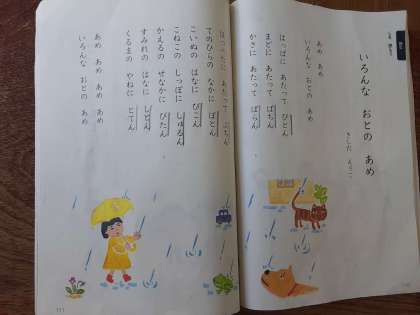 いろんな おとの あめ
きしだ えりこ
あめ あめ
いろんな おとの あめ
はっぱに あたって ぴとん
まどに あたって ぱちん
かさに あたって ぱらん
ほっぺたに あたって ぷちん
てのひらの なかに ぽとん
こいぬの はなに ぴこん
こねこの しっぽに しゅるん
かえるの せなかに ぴたん
すみれの はなに しとん
くるまの やねに とてん
あめ あめ あめ あめ
いろんな おとの あめ
111